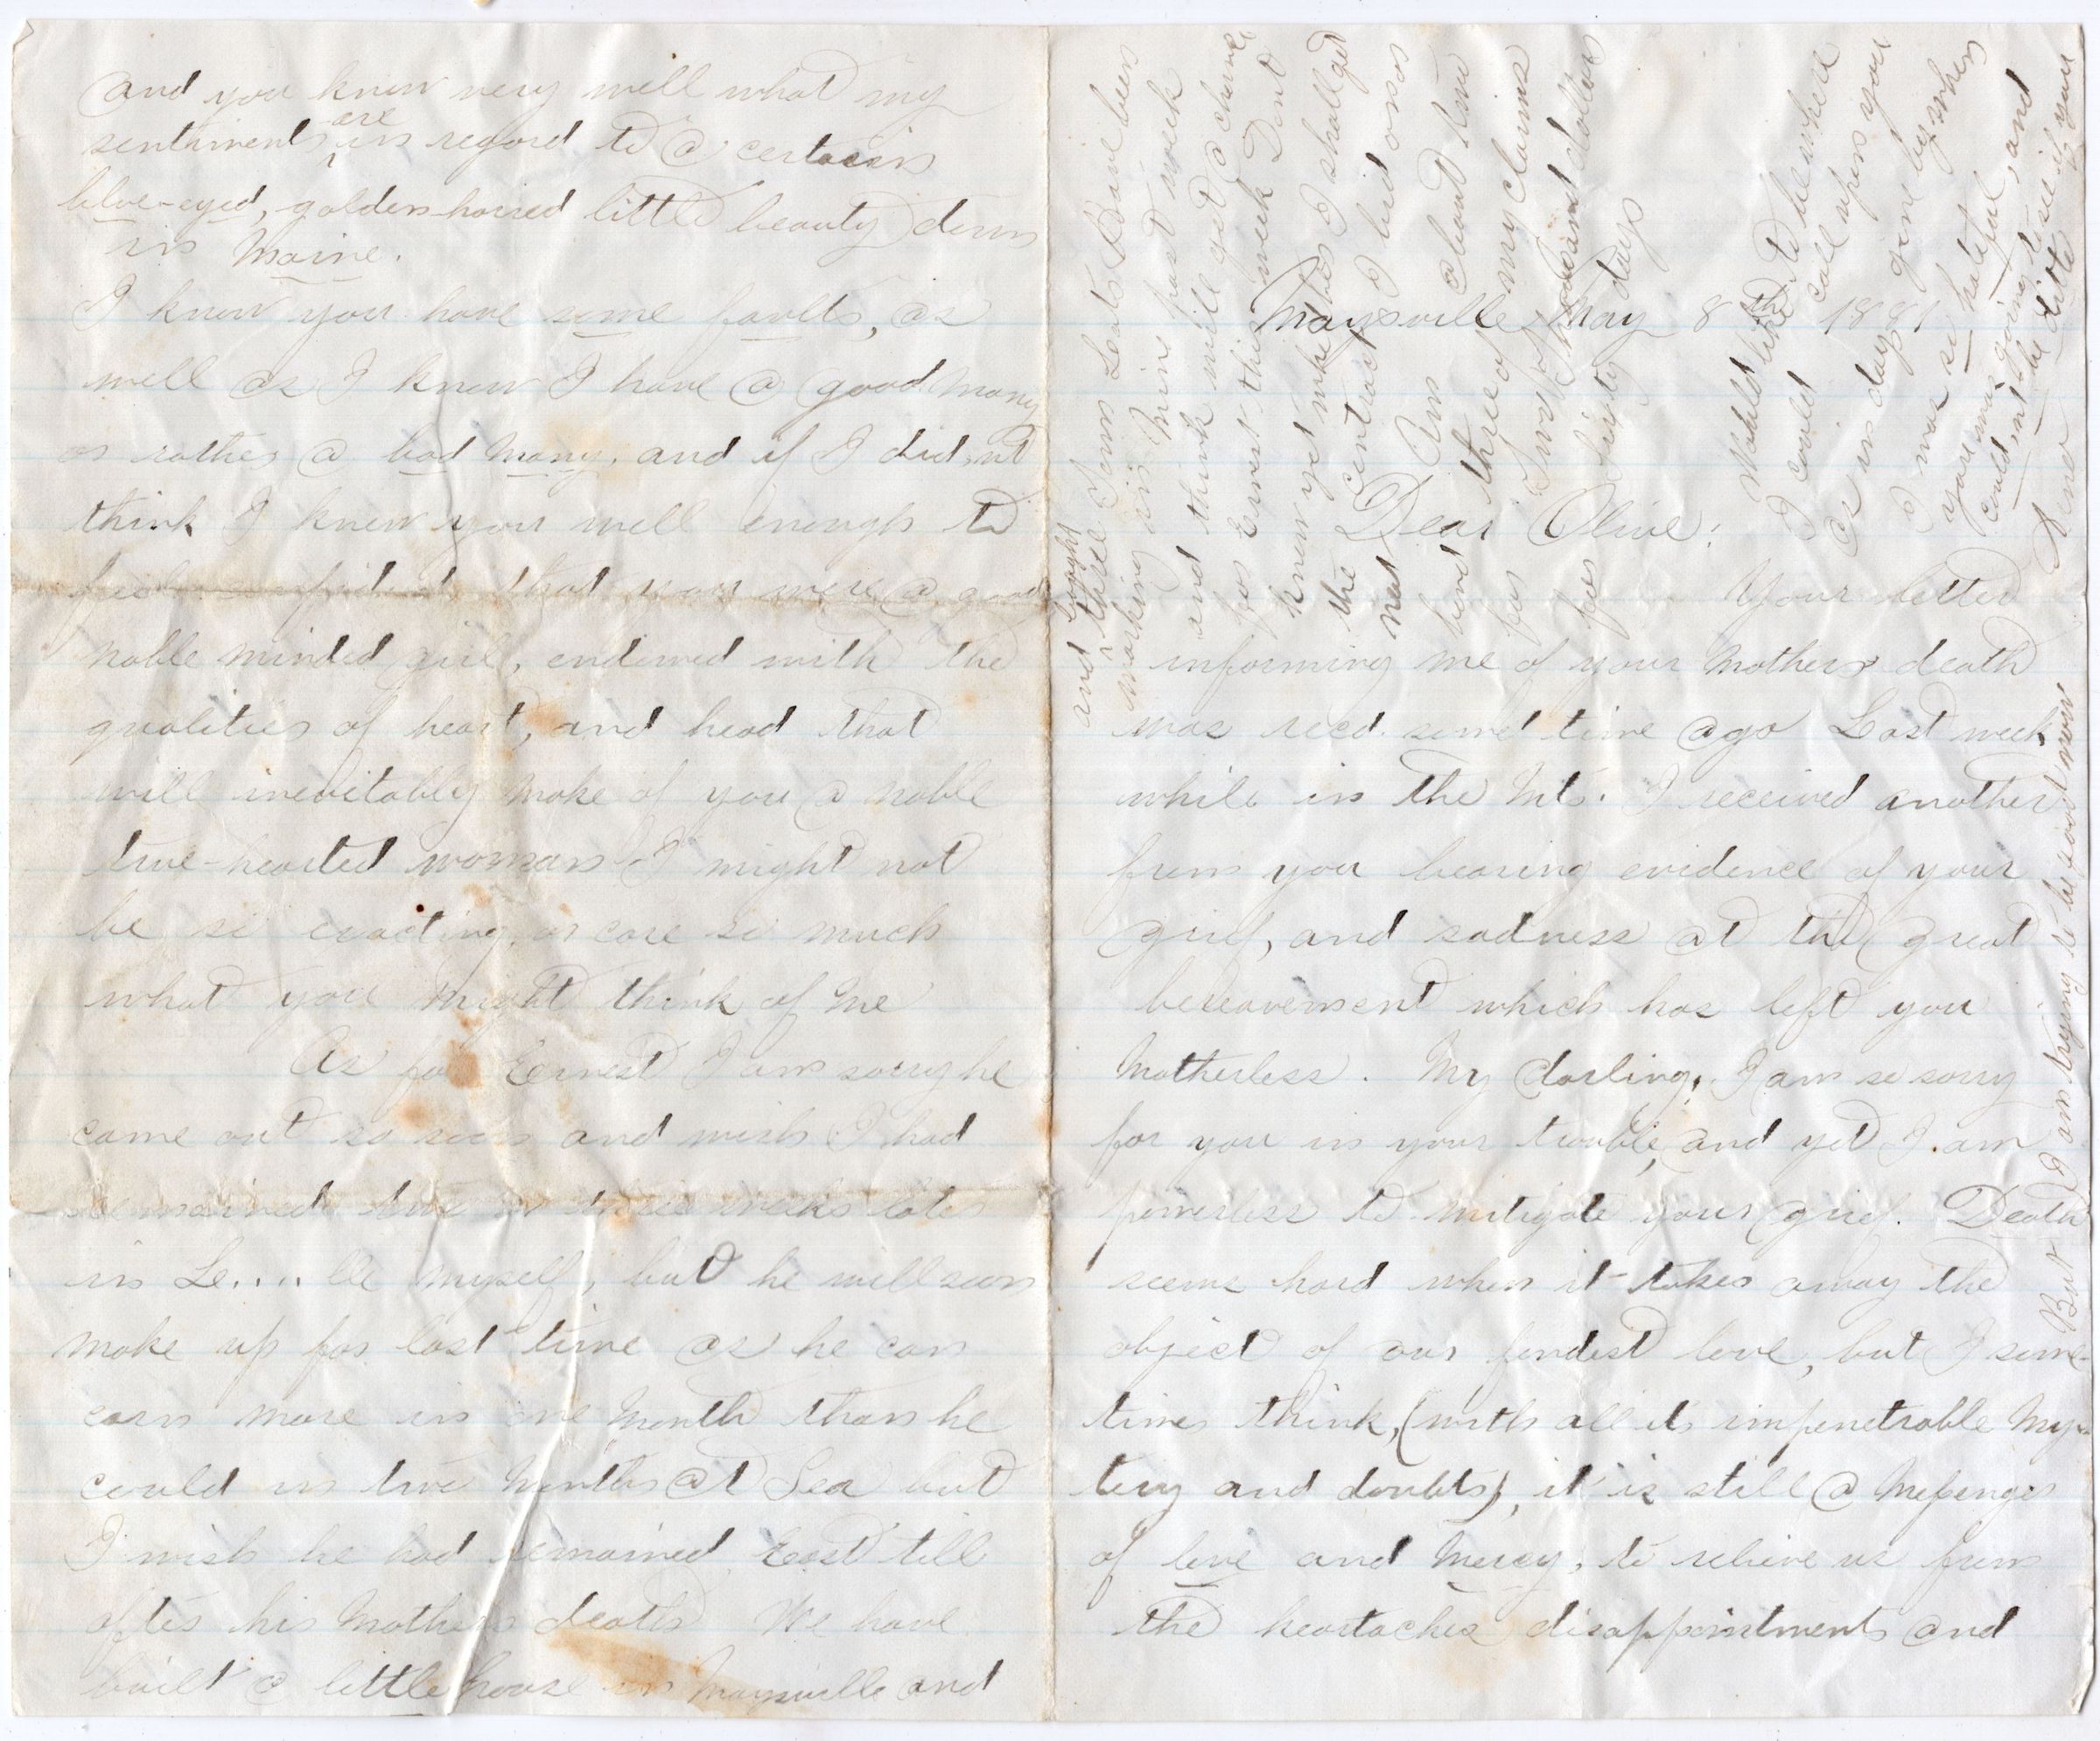 Maysville May 8th 1881
Dear Olive:
Your letter
informing me of your Mothers death
was recd. some time ago Last week
while in the Mts. I received another
from you bearing evidence of your
grief, and sadness at the great
bereavement which has left you
Motherless. My darling, I am so sorry
for you in your trouble, and yet I am
powerless to mitigate your grief. Death
seems hard when it takes away the
object of our fondest love, but I some-
times think, (with all its impenetrable Mys-
tery and doubts), it is still a Messenger
of love and Mercy, to relieve us from
the heartaches disappointments and
and you know very well what my
sentiments are in regard to a certain
blue-eyed, golden-haired little beauty down
in Maine.
I know you have some faults, as
well as I know I have a good many
or rather a bad many, and if I did,nt
think I knew you well enough to
feel confident that you were a good
noble minded girl, endowed with the
qualities of heart, and head that
will inevitably make of you a noble
true-hearted woman I might not
be so exacting, or care so much
what you might think of me
As for Ernest I am sorry he
came out so soon and wish I had
remained two or three weeks later
in Le....lle myself, but he will soon
make up for lost time as he can
earn more in one Month than he
could in two Months at Sea but
I wish he had remained East till
after his Mothers death We have
built a little house in Maysville and
and bought three Town Lots Have been
working in Mine past week
and think will get a chance
for Ernest this week Dont
know yet whether I shall get
the contract I bid on or
not Am about
bond three of my claims
for Two Thousand dollars
for sixty days
Would like to be where
I could call upon you
as in days gone by when
I was so hateful, and
you was going to see if you
couldn't be ditto
But I am trying to be good now